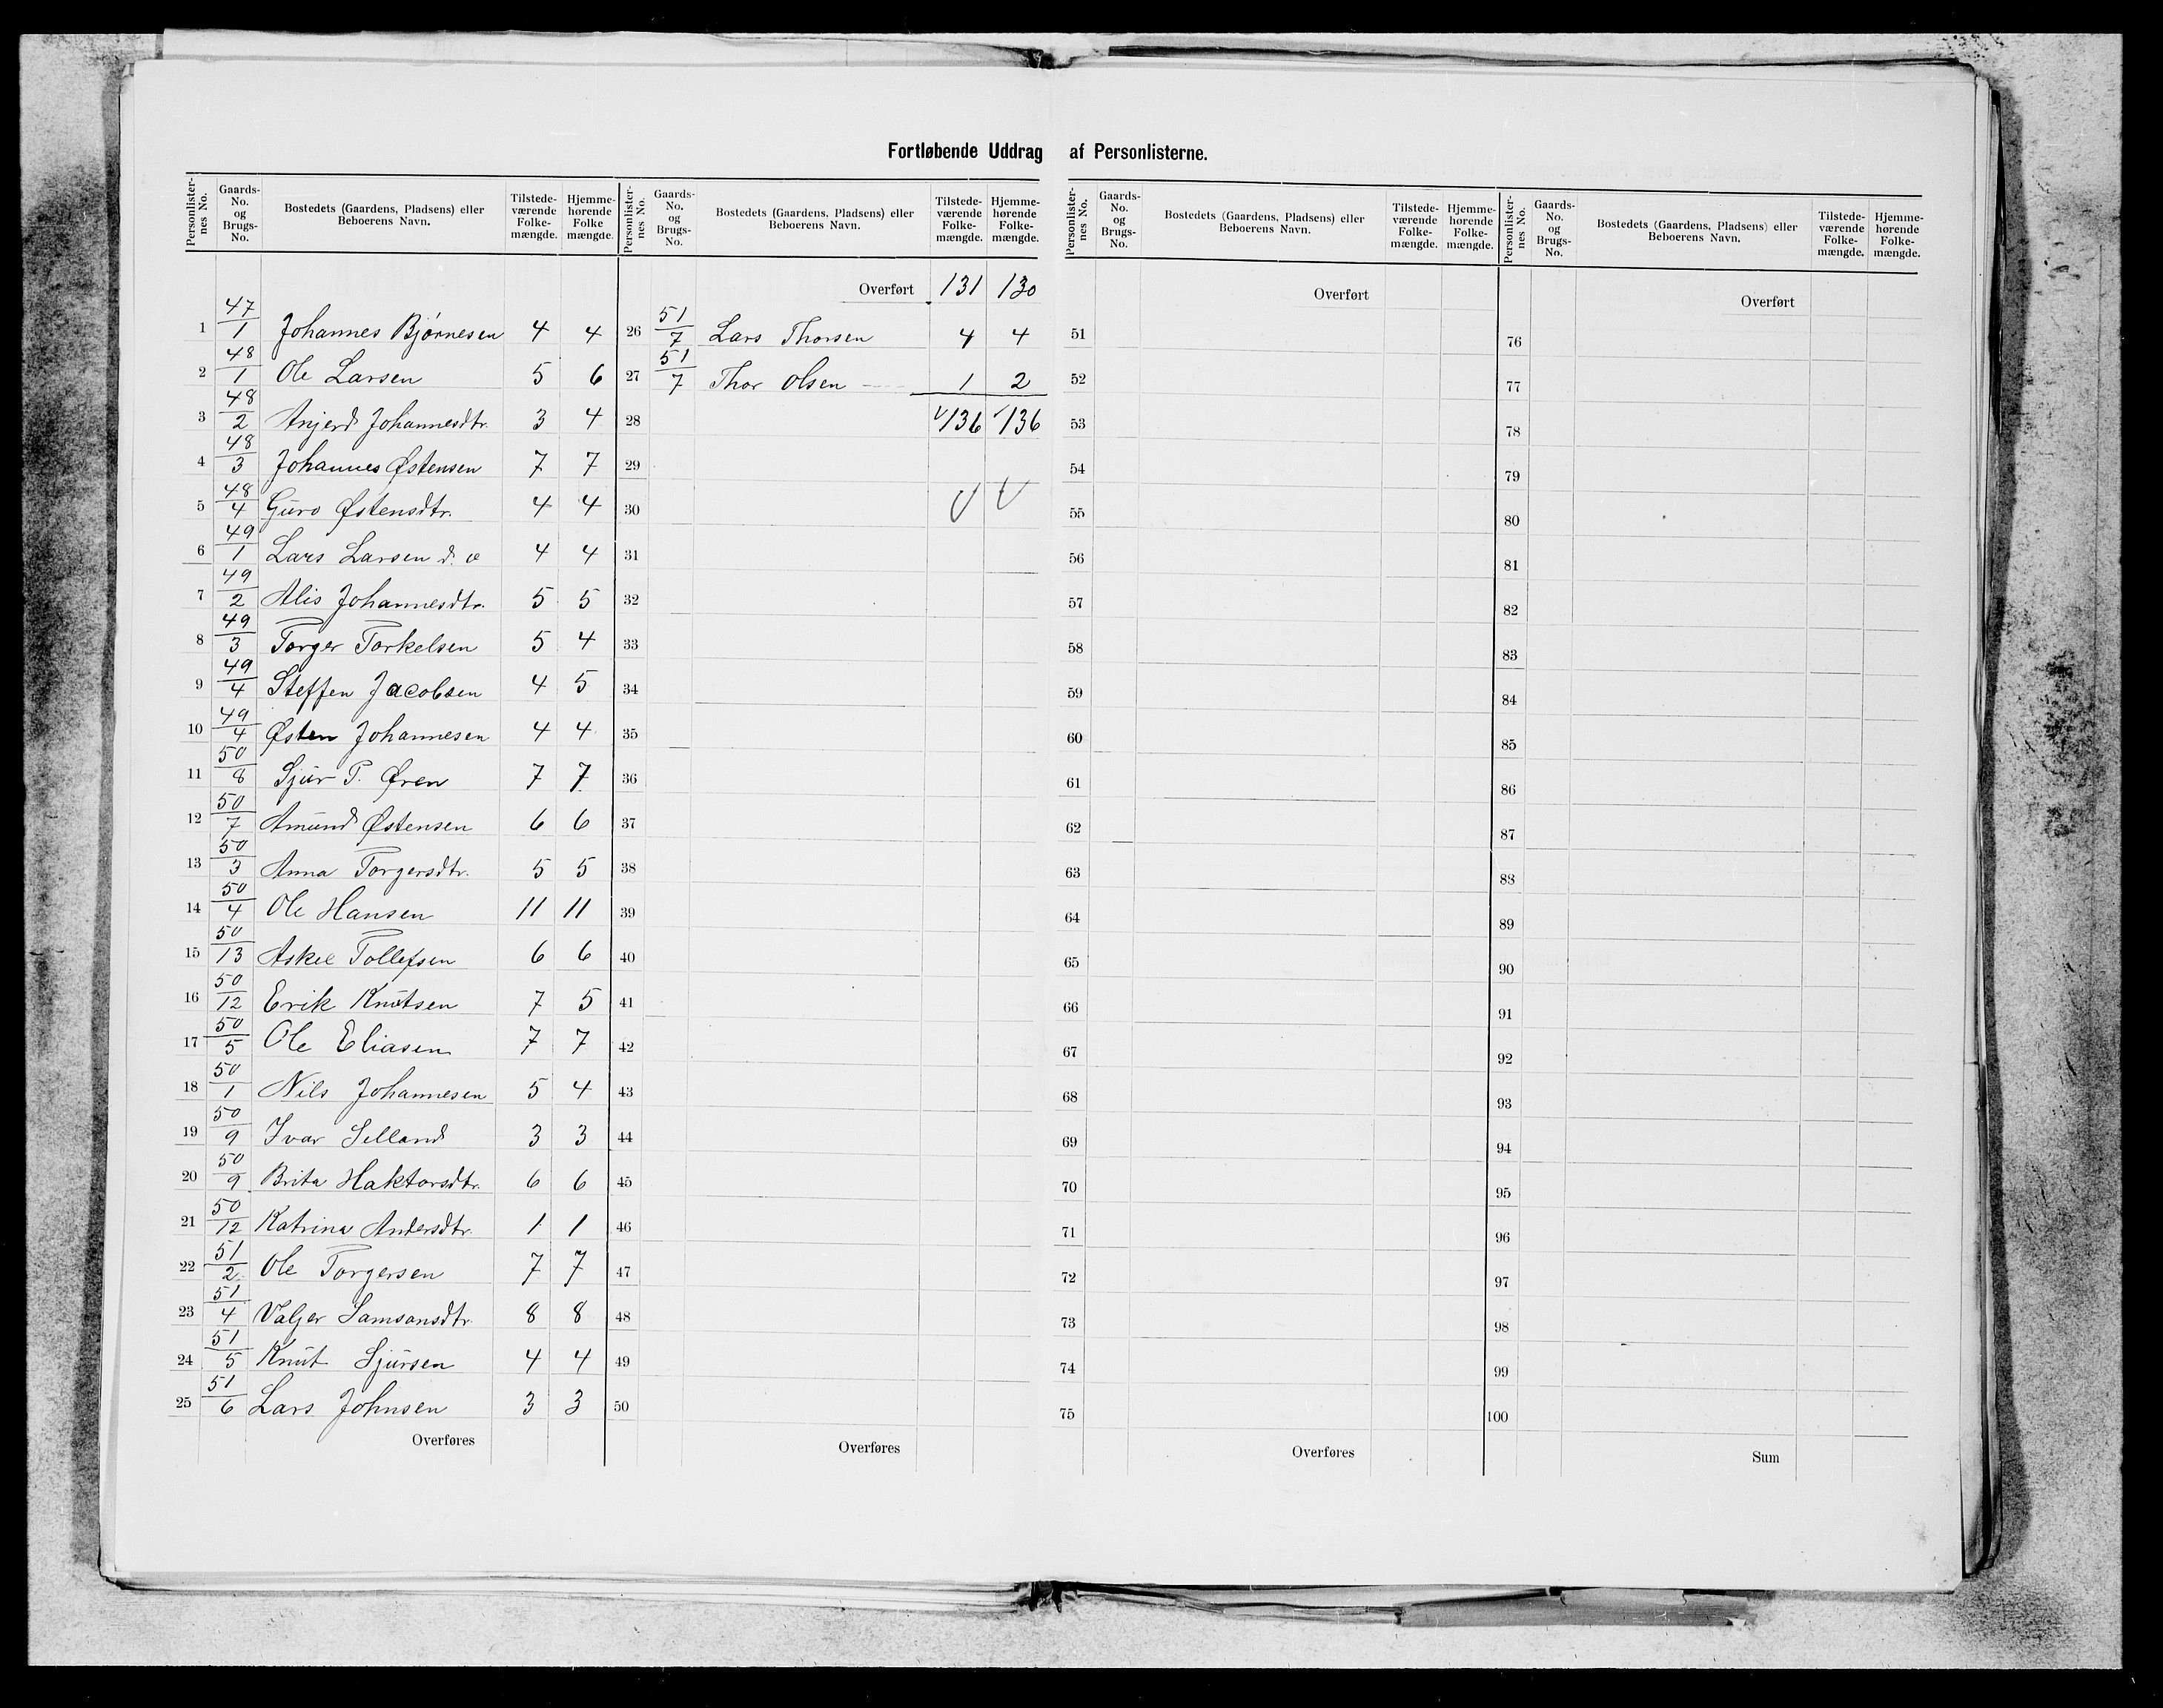 Fortløbende Uddrag af Personlisterne.
Personlister-nes No. Gaards-No. og Brugs-No. Bostedets (Gaardens, Pladsens) eller Beboerens Navn. Tilstede-værende Folke-mængde. Hjemme-hørende Folke mængde.
1 47/1 Johannes Bjørnesen 4 4
2 48/1 Ole Larsen 5 6
3 48/2 Anjerd Johannesdtr. 3 4
4 48/3 Johannes Østensen 7 7
5 48/4 Guro Østensdtr. 4 4
6 49/1 Lars Larsen d. æ 4 4
7 49/2 Alis Johannesdtr. 5 5
8 49/3 Torger Torkelsen 5 4
9 49/4 Steffen Jacobsen 4 5
10 49/4 Østen Johannesen 4 4
11 50/8 Sjur T. Øren 7 7
12 50/7 Amund Østensen 6 6
13 50/3 Anna Torgersdtr. 5 5
14 50/4 Ole Hansen 11 11
15 50/13 Askel Tollefsen 6 6
16 50/12 Erik Knutsen 7 5
17 50/5 Ole Eliasen 7 7
18 50/1 Nils Johannesen 5 4
19 50/9 Ivar Selland 3 3
20 50/9 Brita Haktorsdtr. 6 6
21 50/12 Katrina Andersdtr. 1 1
22 51/2 Ole Torgersen 7 7
23 51/4 Valger Samsonsdtr. 8 8
24 51/5 Knut Sjursen 4 4
25 51/6 Lars Johnsen 3 3
Overføres
Personlister-nes No. Gaards-No. og Brugs-No. Bostedets (Gaardens, Pladsens) eller Beboerens Navn. Tilstede-værende Folke-mængde. Hjemme-hørende Folke-mængde.
Overført 131 130
26 51/7 Lars Thorsen 4 4
27 51/7 Thor Olsen 1 2
28 136 136
29
30
31
32
33
34
35
36
37
38
39
40
41
42
43
44
45
46
47
48
49
50
Overføres
Personlister-nes No. Gaards-No. og Brugs-No. Bostedets (Gaardens, Pladsens) eller Beboerens Navn. Tilstede-værende Folke-mængde. Hjemme-hørende Folke-mængde.
Overført
51
52
53
54
55
56
57
58
59
60
61
62
63
64
65
66
67
68
69
70
71
72
73
74
75
Overføres
Personlister-nes No. Gaards-No. og Brugs-No. Bostedets (Gaardens, Pladsens) eller Beboerens Navn. Tilstede-værende Folke-mængde. Hjemme-hørende Folke-mængde.
Overført
76
77
78
79
80
81
82
83
84
85
86
87
88
89
90
91
92
93
94
95
96
97
98
99
100
Sum